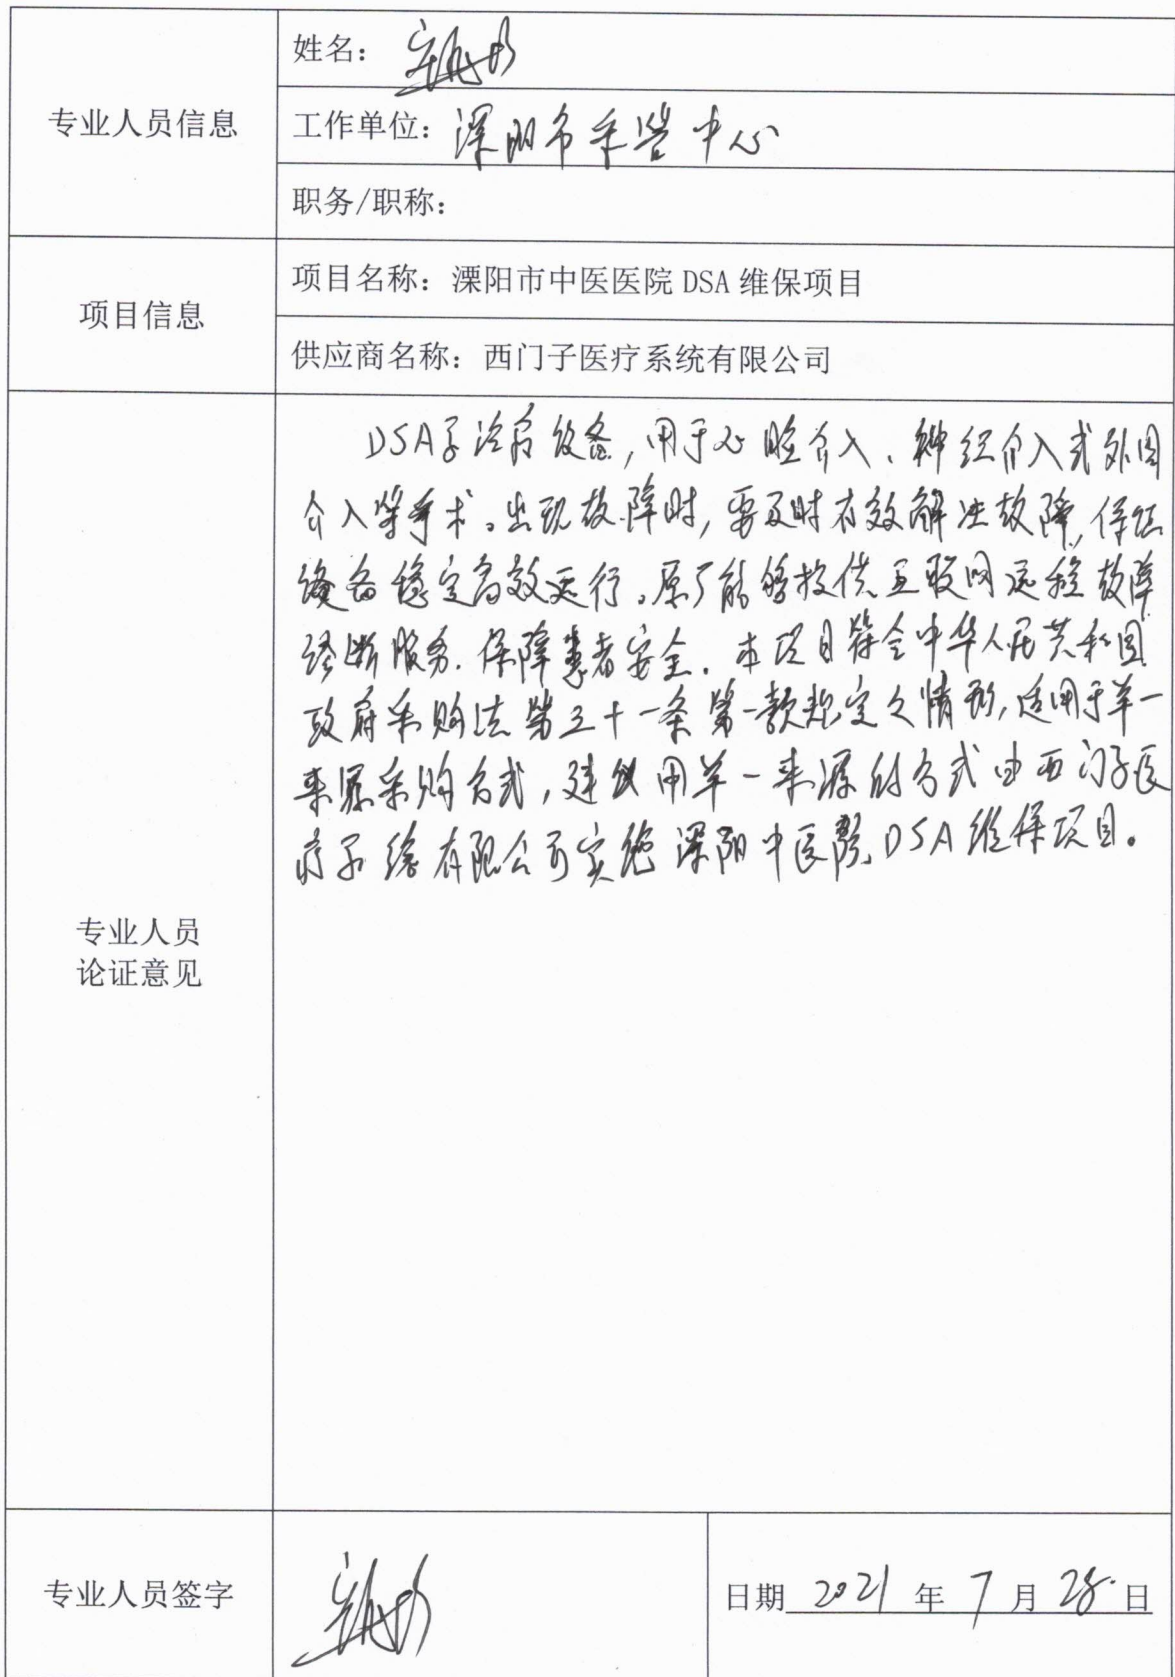 专业人员信息
姓名：
工作单位：溧阳市采管中心
职务/职称：
项目信息
项目名称：溧阳市中医医院 DSA 维保项目
供应商名称：西门子医疗系统有限公司
专业人员
论证意见
DSA系治疗设备，用于心脏介入、神经介入或外周
介入等手术。出现故障时，要及时有效解决故障，保证
设备稳定高效运行。原厂能够提供互联网远程故障
诊断服务.保障患者安全.本项目符合中华人民共和国
政府采购法第三十一条第一款规定之情形，适用于单一
来源采购方式，建议用单一来源的方式由西门子医
疗系统有限公司实施溧阳中医院DSA维保项目。
专业人员签字
日期 2021 年 7 月 28 日